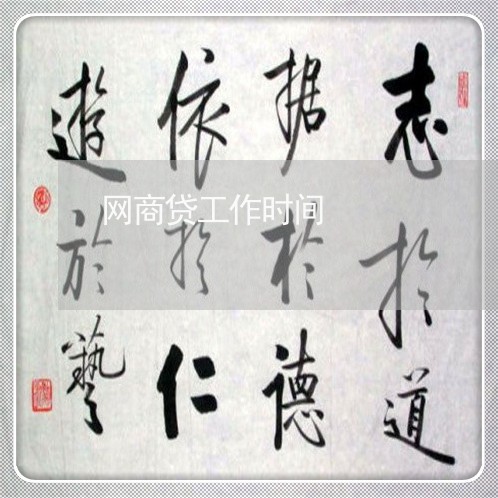 志於道
据於德
依於仁
遊於藝
网商贷工作时间